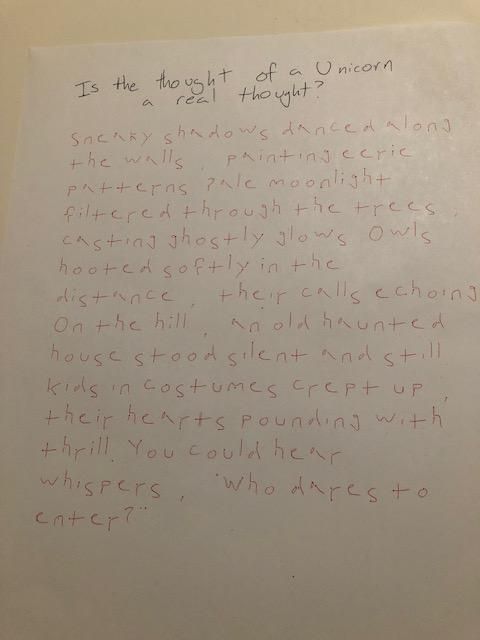 Is the thought of a Unicorn
a real thought?
Sneaky shadows danced along
the walls, painting eerie
patterns Pale moonlight
filtered through the trees,
casting ghostly glows Owls
hooted softly in the
distance, their calls echoing
On the hill, an old haunted
house stood silent and still
Kids in costumes crept up,
their hearts pounding with
thrill. You could hear
whispers, "Who dares to
enter?"